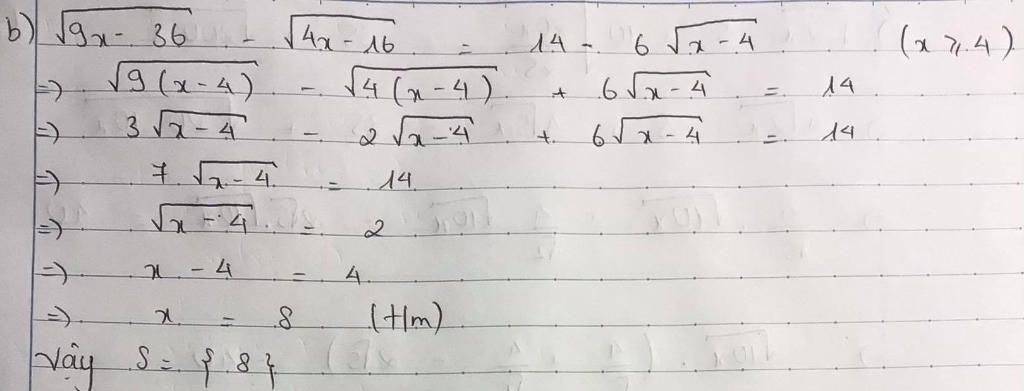 b) √(9x - 36) - √(4x - 16) = 14 - 6√(x - 4) (x ⩾ 4)
=> √(9(x - 4)) - √(4(x - 4)) + 6√(x - 4) = 14
=> 3√(x - 4) - 2√(x - 4) + 6√(x - 4) = 14
=> 7√(x - 4) = 14
=> √(x - 4) = 2
=> x - 4 = 4
=> x = 8 (t/m)
Vậy S = { 8 }